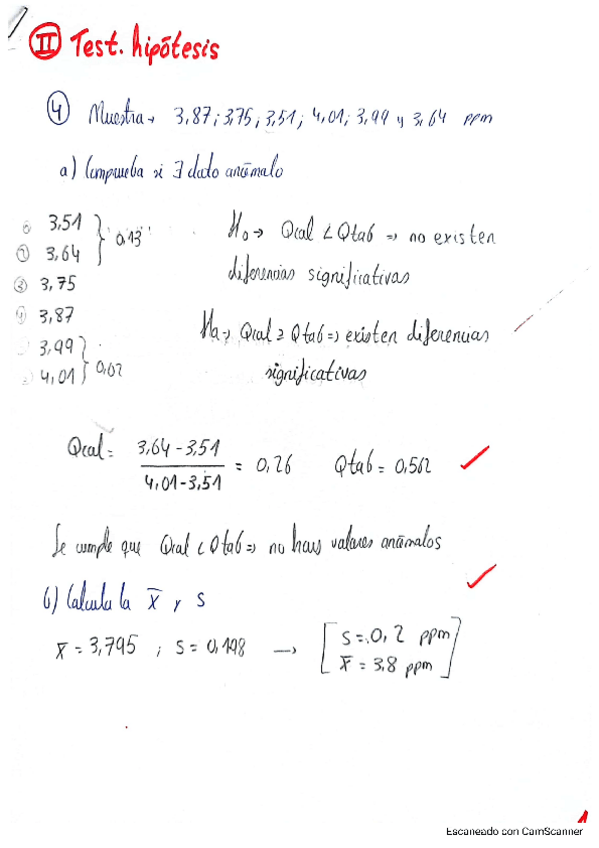 II Test. hipótesis
4 Muestra → 3,87; 3,75; 3,51; 4,01; 3,99 y 3,64 ppm
a) Comprueba si ∃ dato anómalo
① 3,51
② 3,64 } 0,13
③ 3,75
④ 3,87
3,99
4,01 } 0,02
H₀ → Qcal < Qtab ⇒ no existen
diferencias significativas
Ha → Qcal ≥ Qtab ⇒ existen diferencias
significativas
Qcal = (3,64 - 3,51) / (4,01 - 3,51) = 0,26 Qtab = 0,562 ✓
Se cumple que Qcal < Qtab ⇒ no hay valores anómalos
b) Calcula la x̄ y s ✓
x̄ = 3,795 ; s = 0,198 → [s = 0,2 ppm
x̄ = 3,8 ppm]
1
Escaneado con CamScanner